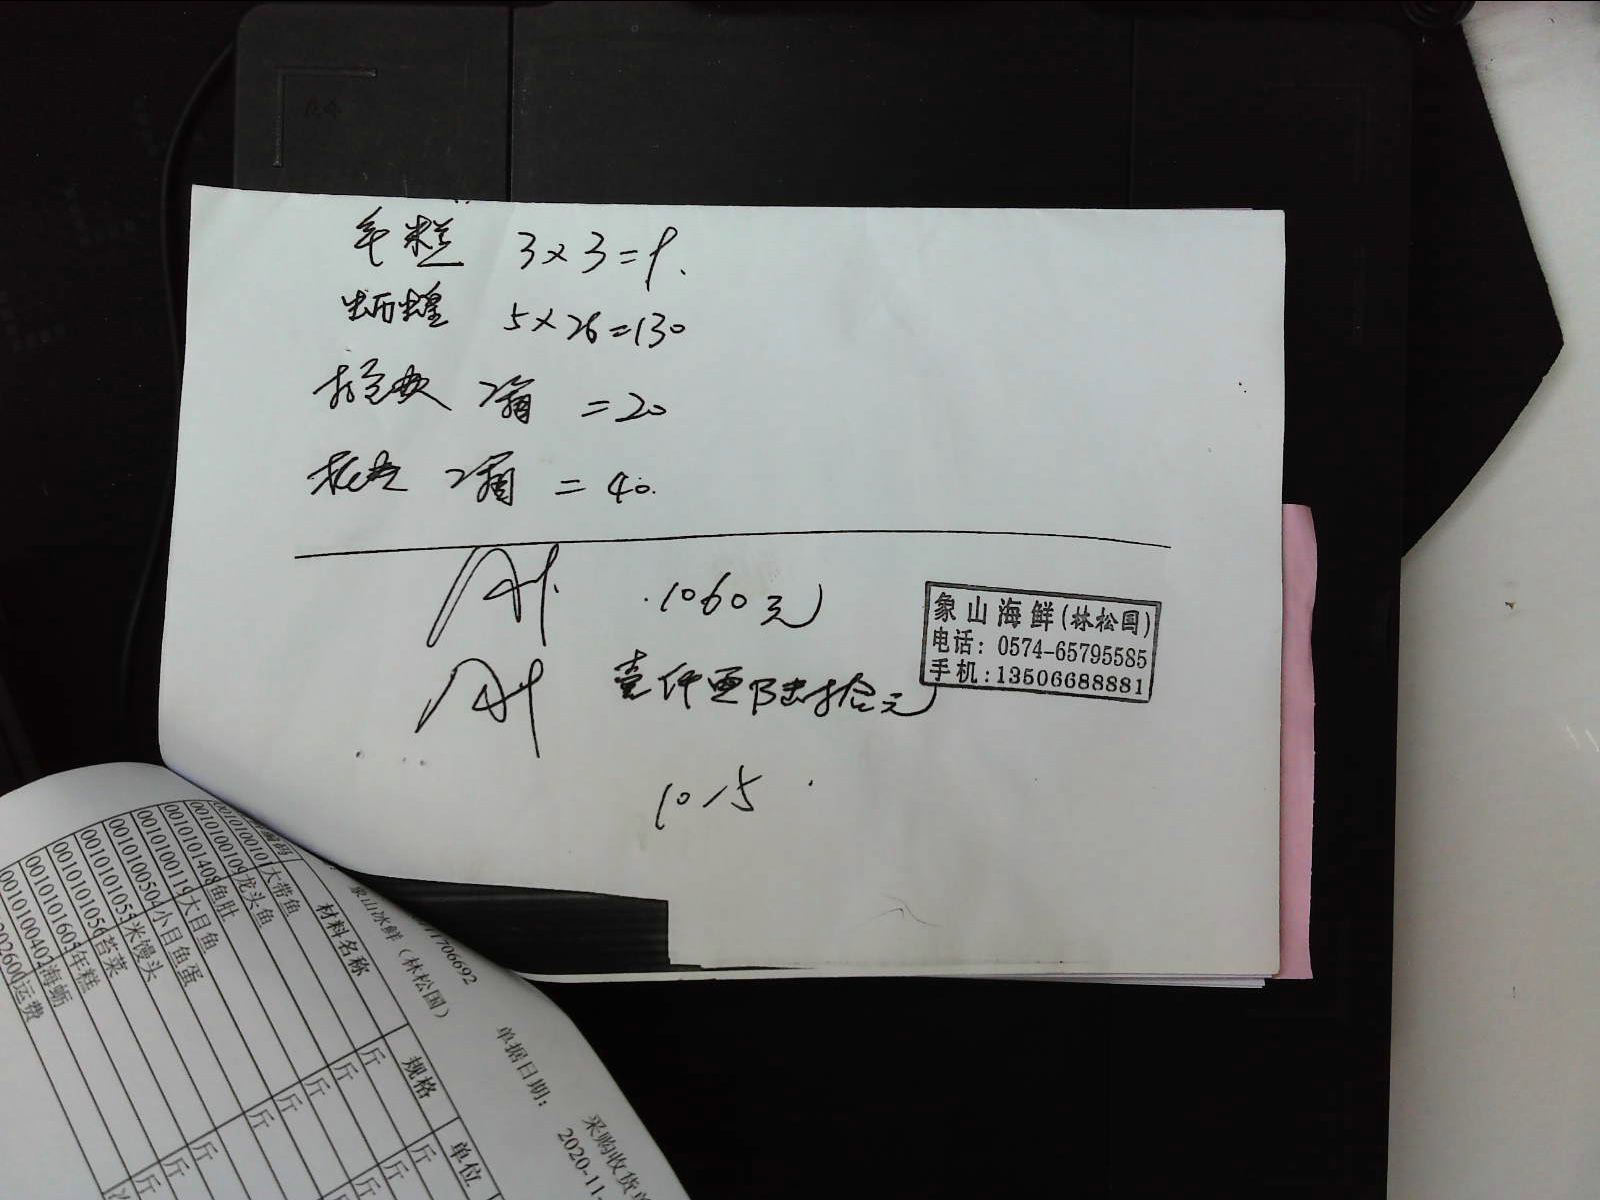 年糕 3×3=9.
蛎蝗 5×26=130
打包费 2箱 =20
托运 2箱 =40.
共 1060元
共 壹仟零陆拾元
10/5
象山海鲜(林松国)
电话: 0574-65795585
手机:13506688881
采购收货单
单据日期: 2020-11-
象山冰鲜(林松国)
1706692
编码 材料名称 规格 单位
0010100101 大带鱼 斤 斤
0010100109 龙头鱼 斤 斤
0010101408 鱼肚 斤 斤
0010100119 大目鱼 斤
0010100504 小目鱼蛋 斤
0010101055 米馒头
0010101056 苔菜 斤
0010101605 年糕 斤
0010100402 海蛎 斤
202600 运费